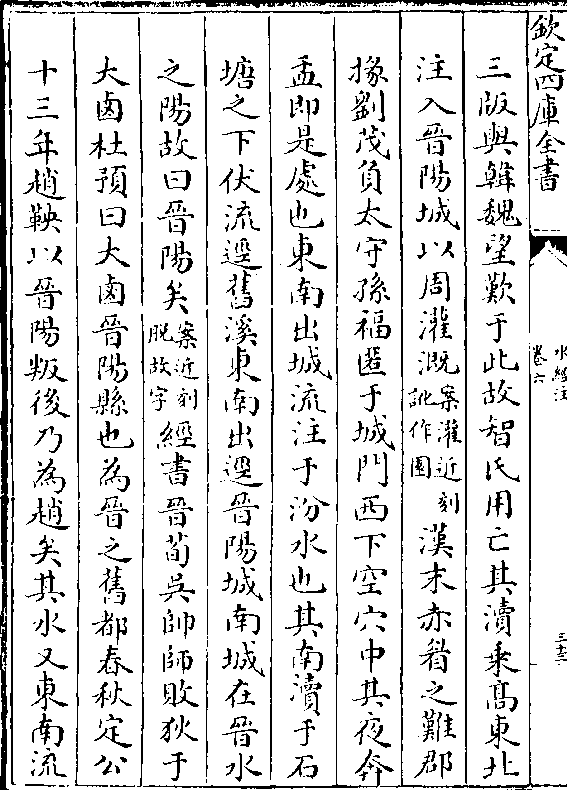 欽定四庫全書
水經注
卷六
三十二
三版與韓魏望歎于此故智氏用亡其瀆乘髙東北
注入晉陽城以周灌溉案灌近刻訛作園漢末赤眉之難郡
掾劉茂負太守孫福匿于城門西下空穴中其夜奔
盂即是處也東南出城流注于汾水也其南瀆于石
塘之下伏流逕舊溪東南出逕晉陽城南城在晉水
之陽故曰晉陽矣案近刻脫故字經書晉荀吳帥師敗狄于
大鹵杜預曰大鹵晉陽縣也為晉之舊都春秋定公
十三年趙鞅以晉陽叛後乃為趙矣其水又東南流